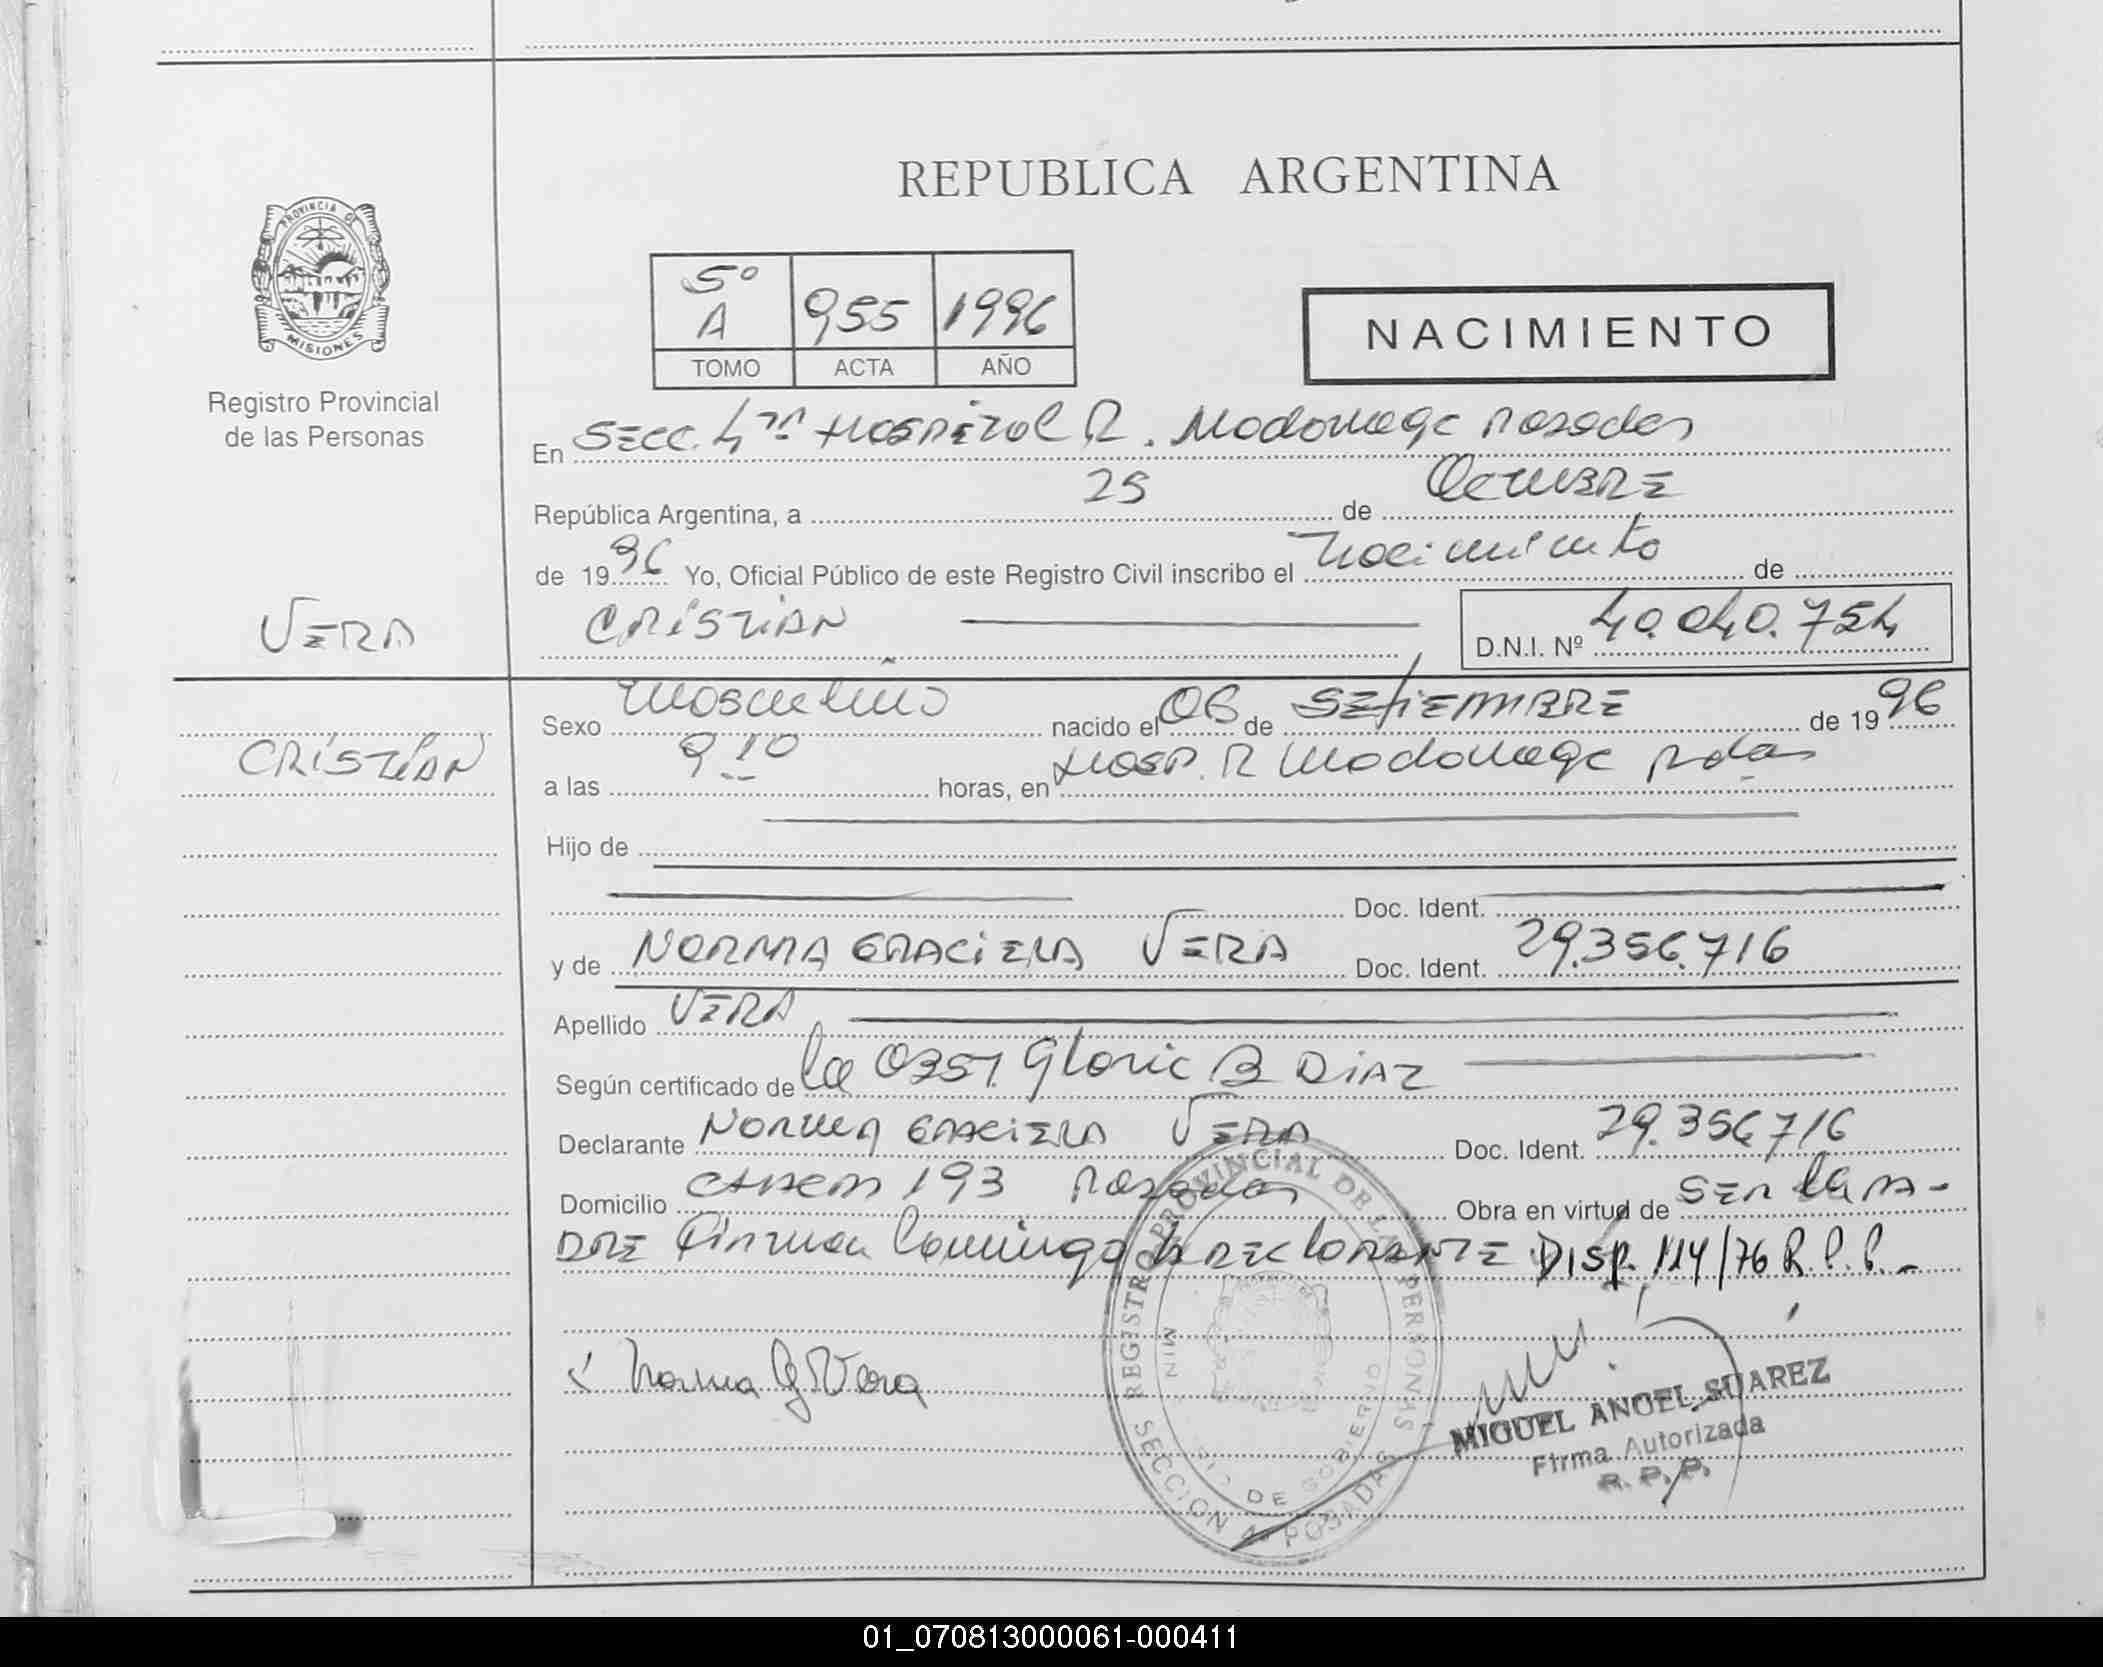 REPUBLICA ARGENTINA
PROVINCIA DE
MISIONES
Registro Provincial
de las Personas
5º
A 955 1996
TOMO ACTA AÑO
NACIMIENTO
En SECC. 4ta HOSPITAL R. Madariaga Posadas
República Argentina, a 25 de OCTUBRE
de 1996 Yo, Oficial Público de este Registro Civil inscribo el Nacimiento de
VERA
CRISTIAN D.N.I. Nº 40.040.754
CRISTIAN
Sexo masculino nacido el 06 de SETIEMBRE de 1996
a las 9.10 horas, en HOSP. R Madariaga Pdas
Hijo de
Doc. Ident.
y de NORMA GRACIELA VERA Doc. Ident. 29.356.716
Apellido VERA
Según certificado de la OBST. Gloria B DIAZ
Declarante NORMA GRACIELA VERA Doc. Ident. 29.356716
Domicilio 193 Posadas Obra en virtud de SER la MA-
DRE Firman conmigo la DECLARANTE DISP. 114/76 R.P.P.-
Norma G Vera
REGISTRO PROVINCIAL DE LAS PERSONAS
SECCION 4a POSADAS
MINISTERIO DE GOBIERNO
MIGUEL ANGEL SUAREZ
Firma Autorizada
R. P. P.
01_070813000061-000411